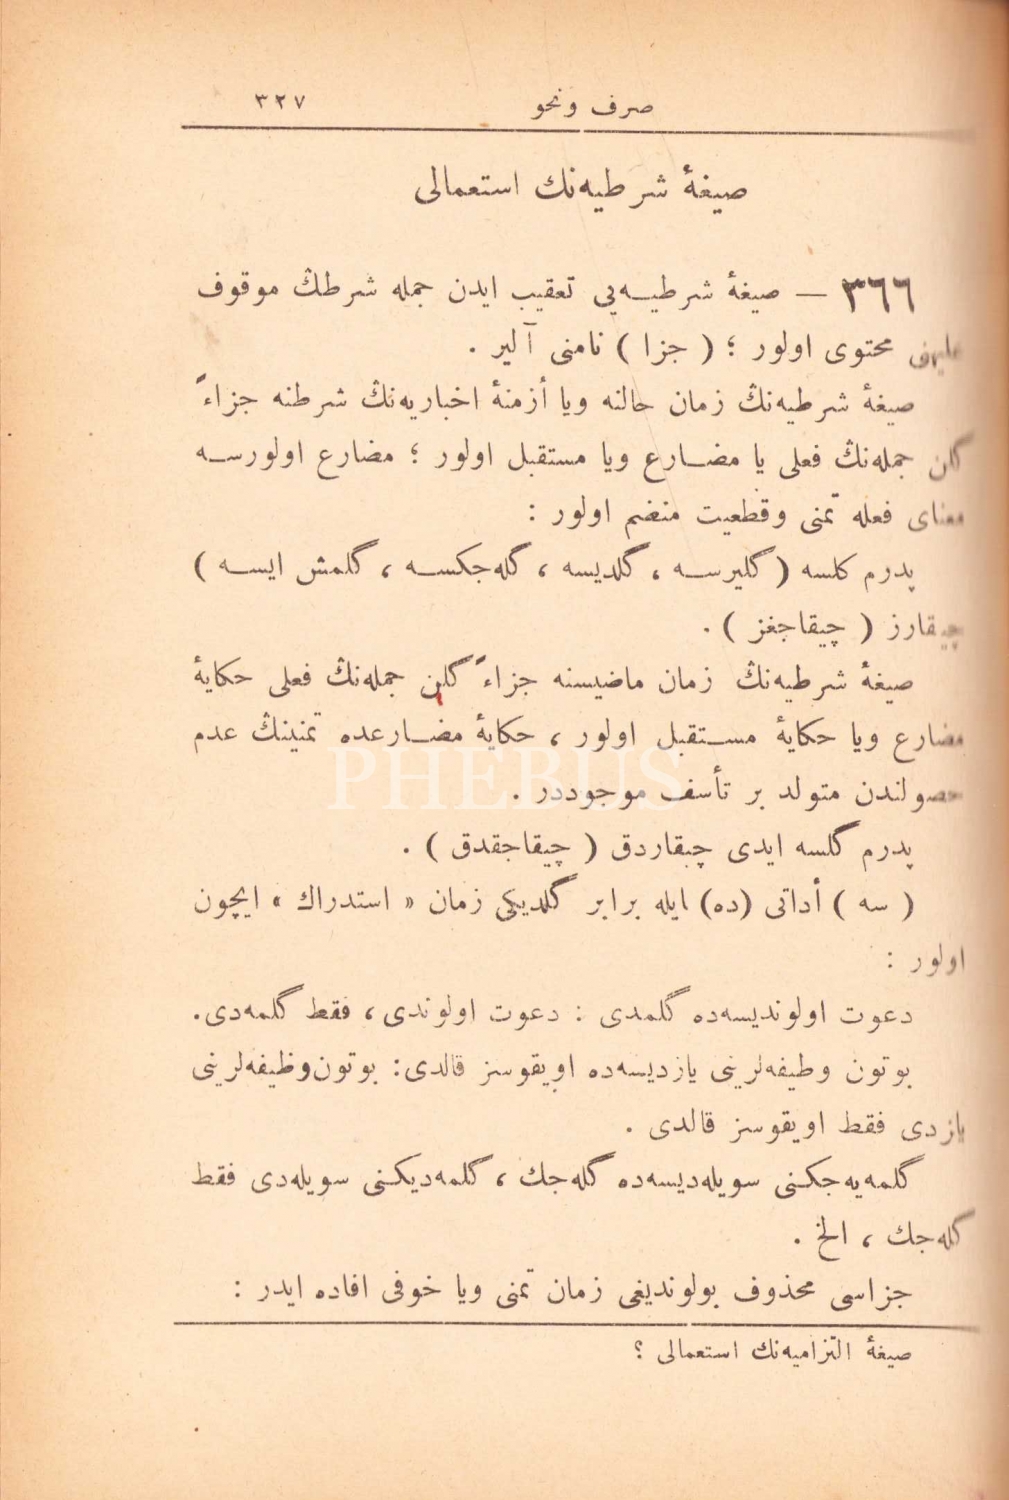 صرف و نحو ٣٢٧
صیغۀ شرطیه‌نك استعمالی
٣٦٦ — صیغۀ شرطیـه‌یی تعقیب ایدن جمله شرطڭ موقوف
علیهنی محتوی اولور ؛ ( جزا ) نامنی آلیر .
صیغۀ شرطیه‌نڭ زمان حالنه ویا أزمنۀ اخباریه‌نڭ شرطنه جزاءً
گلن جمله‌نڭ فعلی یا مضـارع ویا مستقبل اولور ؛ مضارع اولورسـه
معنای فعله تمنی وقطعیت منضم اولور :
پدرم كلسه ( گلیرسـه ، گلدیسه ، گله‌جكسـه ، گلمش ایسـه )
چیقارز ( چیقاجغز ) .
صیغۀ شرطیه‌نڭ زمان ماضیسنه جزاءً گلن جمله‌نڭ فعلی حكایۀ
مضارع ویا حكایۀ مسـتقبل اولور ، حكایۀ مضـارعده تمنینڭ عدم
حصولندن متولد بر تأسف موجوددر .
PHEBUS
پدرم گلسه ایدی چیقاردق ( چیقاجقدق ) .
( سه ) أداتی (ده) ایله برابر گلدیكی زمان « استدراك » ایچون
اولور :
دعوت اولوندیسه‌ده گلمدی : دعوت اولوندی ، فقط گلمه‌دی.
بوتون وظیفه‌لرینی یازدیسه‌ده اویقوسز قالدی: بوتون وظیفه‌لرینی
یازدی فقط اویقوسز قالدی .
گلمه‌یه‌جكنی سویله‌دیسه‌ده گله‌جك ، گلمه‌دیكنی سویله‌دی فقط
گله‌جك ، الخ .
جزاسی محذوف بولوندیغی زمان تمنی ویا خوفی افاده ایدر :
صیغۀ التزامیه‌نك استعمالی ؟